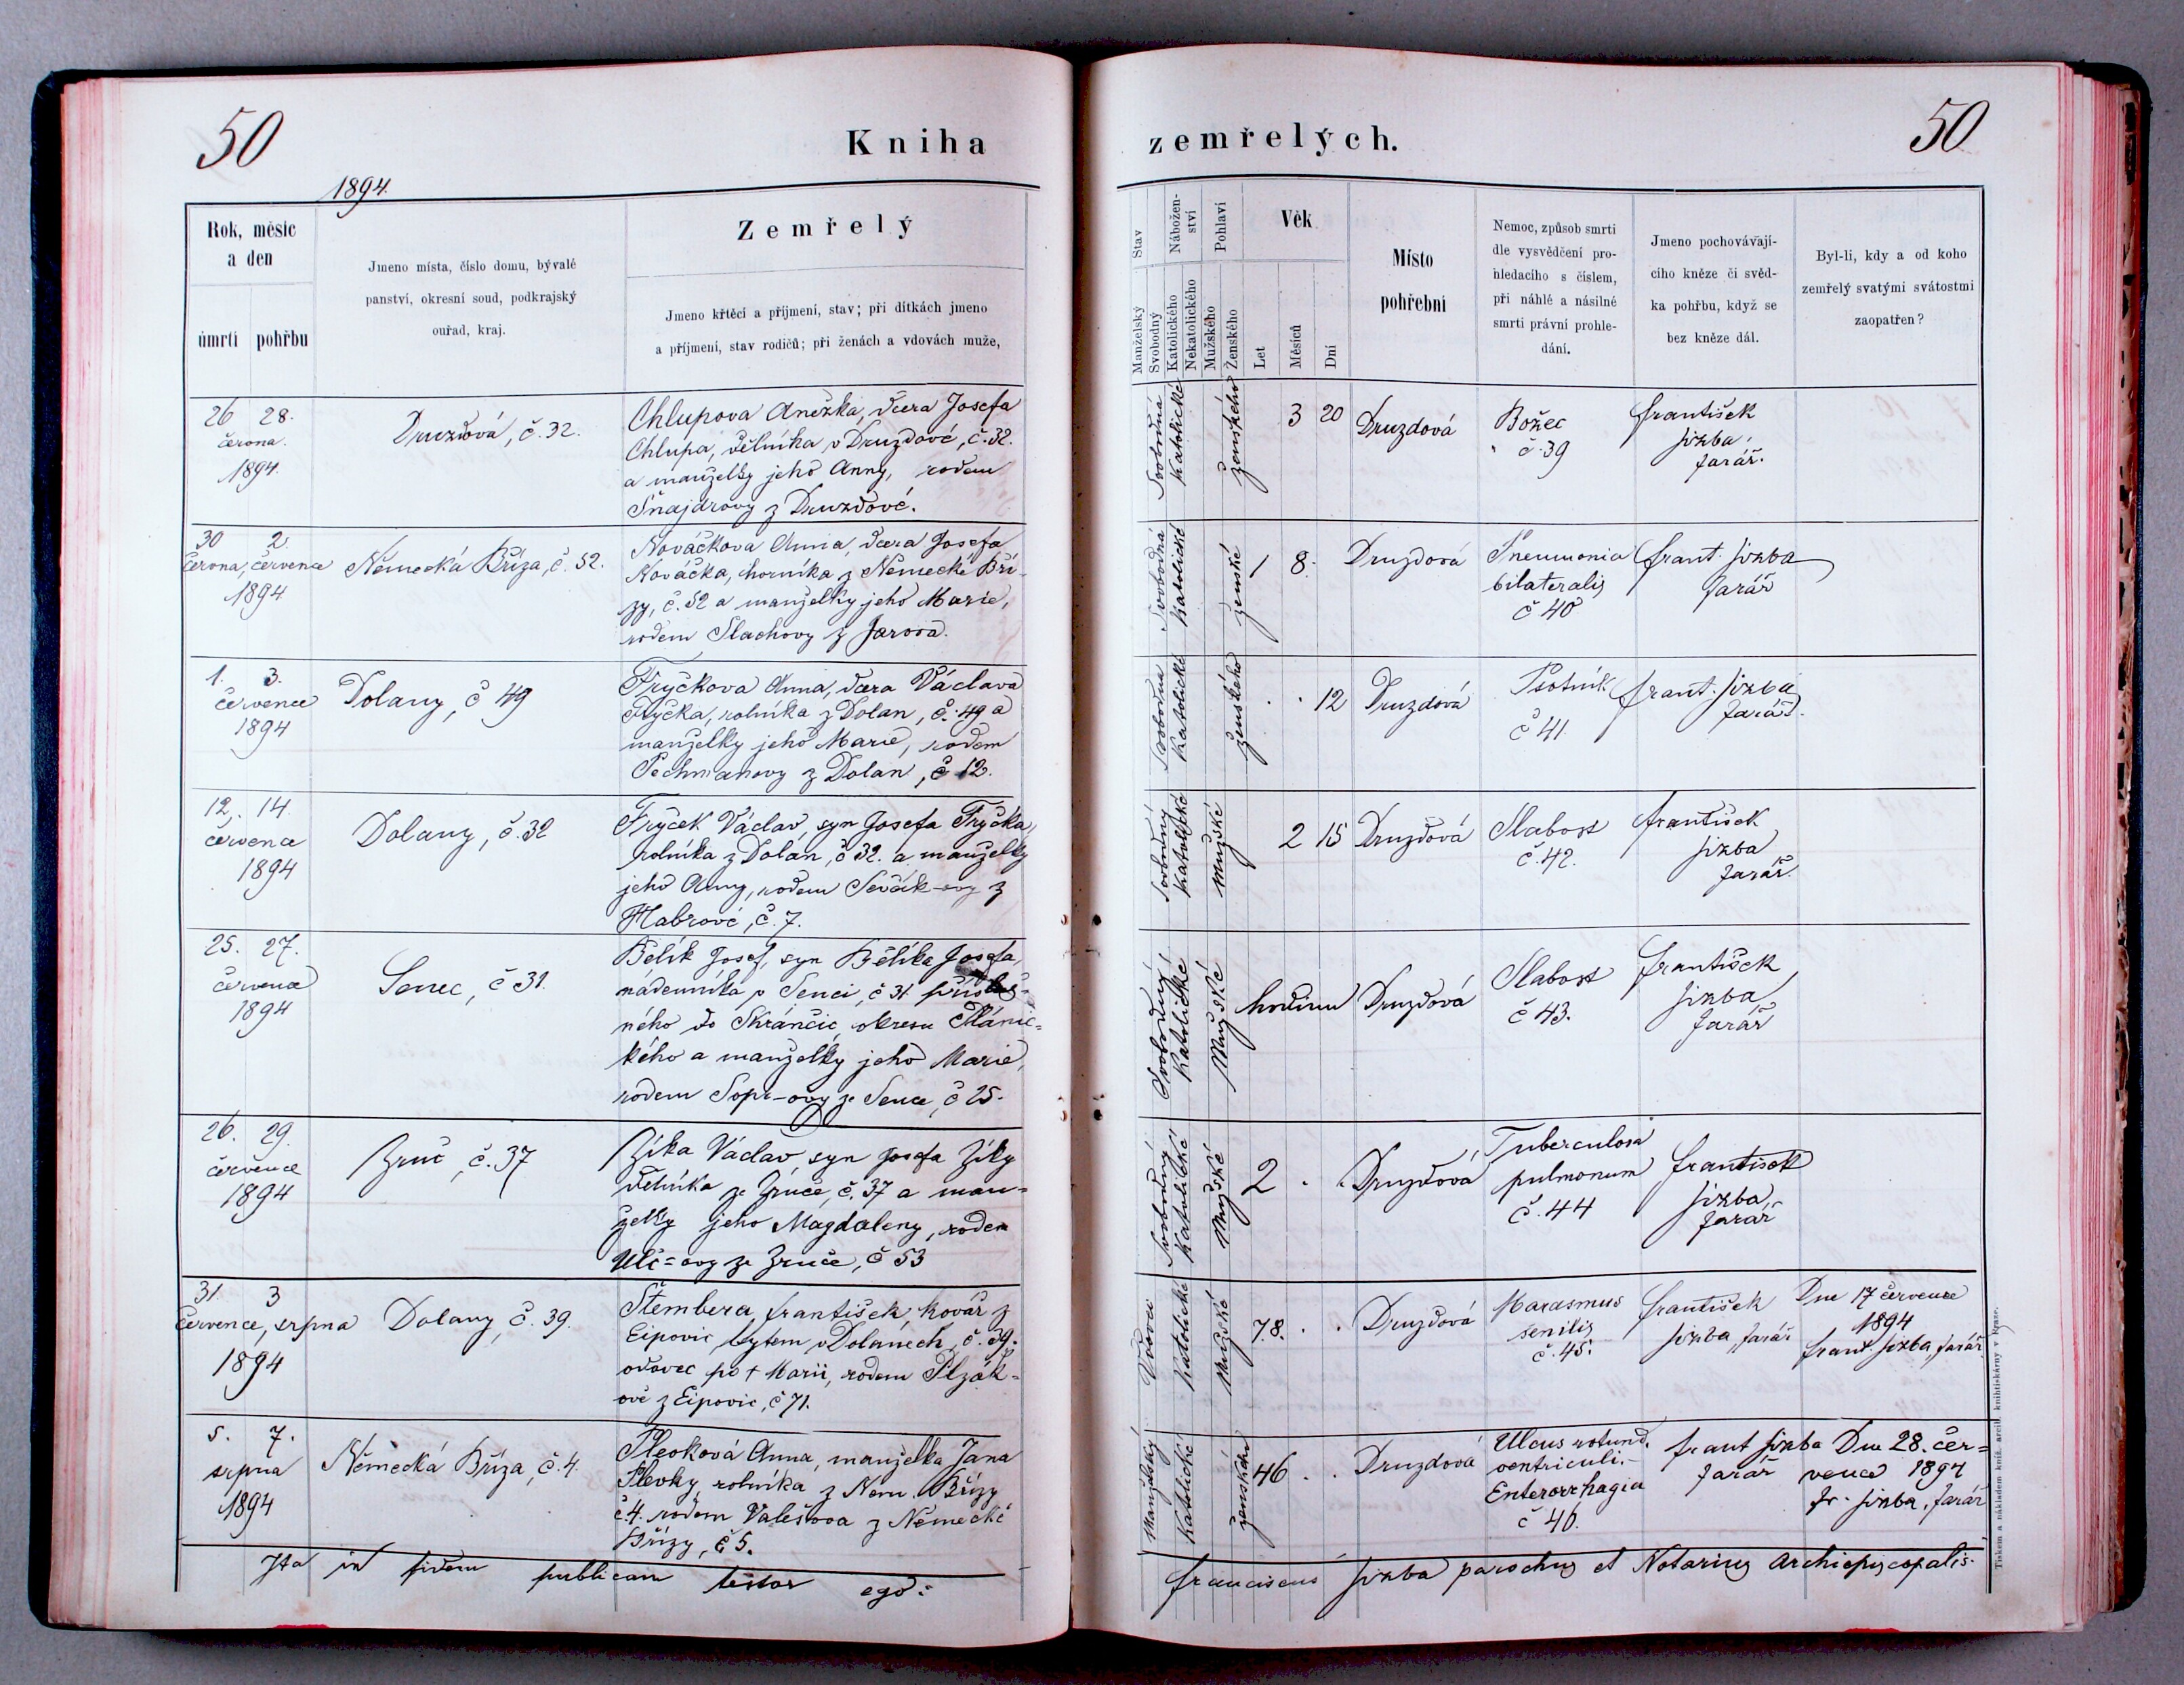 50
Kniha
1894.
Rok, měsíc
a den
úmrtí pohřbu
Jmeno místa, číslo domu, bývalé
panství, okresní soud, podkrajský
ouřad, kraj.
Zemřelý
Jmeno křtěcí a příjmení, stav; při dítkách jmeno
a příjmení, stav rodičů; při ženách a vdovách muže,
26 28.
června.
1894.
Druzdová, č. 32.
Chlupova Anežka, dcera Josefa
Chlupa, dělníka v Druzdové, č. 32.
a manželky jeho Anny, rodem
Šnajdrovy z Druzdové.
30 2.
června, července
1894
Německá Bříza, č. 52.
Nováčkova Anna, dcera Josefa
Nováčka, horníka z Německé Bří-
zy, č. 52 a manželky jeho Marie,
rodem Slachovy z Jarova.
1. 3.
července
1894
Dolany, č 49
Fryčkova Anna, dcera Václava
Fryčka, rolníka z Dolan, č. 49 a
manželky jeho Marie, rodem
Pechmanovy z Dolan, č 12.
12. 14.
července
1894
Dolany, č. 32
Fryček Václav, syn Josefa Fryčka,
rolníka z Dolan, č 32. a manželky
jeho Anny, rodem Ševčík-ovy z
Habrové, č. 7.
25. 27.
července
1894
Senec, č 31.
Bělík Josef, syn Bělíka Josefa,
nádenníka v Senci, č 31 přísluš-
ného do Skránčic, okresu Plánic=
kého a manželky jeho Marie,
rodem Sopr-ovy ze Sence, č 25.
26. 29.
července
1894
Zruč, č. 37
Zíka Václav, syn Josefa Zíky
dělníka ze Zruče, č. 37 a man=
želky jeho Magdaleny, rodem
Ulč=ovy ze Zruče, č 53
31 3
července, srpna
1894
Dolany, č. 39.
Štembera František, kovář z
Eipovic, bytem v Dolanech, č. 39.
vdovec po † Marii, rodem Plzák=
ové z Eipovic, č 71.
5. 7.
srpna
1894
Německá Bříza, č. 4.
Plevková Anna, manželka Jana
Plevky, rolníka z Něm. Břízy
č. 4. rodem Valešova z Německé
Břízy, č 5.
Ita in fidem publicam testor ego:
50
zemřelých.
Stav
Manželský
Svobodný
Nábožen-
ství
Katolického
Nekatolického
Pohlaví
Mužského
Ženského
Věk
Let
Měsíců
Dní
Místo
pohřební
Nemoc, způsob smrti
dle vysvědčení pro-
hledacího s číslem,
při náhlé a násilné
smrti právní prohle-
dání.
Jmeno pochovávají-
cího kněze či svěd-
ka pohřbu, když se
bez kněze dál.
Byl-li, kdy a od koho
zemřelý svatými svátostmi
zaopatřen?
Svobodná
Katolické
ženského
3 20
Druzdová
Božec
č. 39
František
Jizba,
farář.
Svobodná
Katolické
ženské
1 8.
Druzdová
Pneumonia
bilateralis
č 40
Frant. Jizba
farář
Svobodna
Katolické
ženského
. . 12
Druzdová
Psotník
č 41.
Frant. Jizba
farář.
Svobodný
Katolické
mužské
2 15
Druzdová
Slabost
č. 42.
František
Jizba
farář.
Svobodný
Katolické
Mužské
hodinu
Druzdová
Slabost
č 43.
František
Jizba,
farář
Svobodný
Katolické
Mužské
2 . .
Druzdová
Tuberculosa
pulmonum
č. 44
František
Jizba,
farář
Vdovec
Katolické
Mužské
78. . .
Druzdová
Marasmus
senilis
č. 45.
František
Jizba, farář
Dne 17 července
1894
Frant. Jizba, farář
Manželský
Katolické
ženského
46 . .
Druzdová
Ulcus rotund.
ventriculi.-
Enterorrhagia
č 46.
Frant Jizba
farář
Dne 28. čer=
vence 1894
Fr. Jizba, farář
Franciscus Jizba parochus et Notarius Archiepiscopalis.
Tiskem a nákladem kníž. arcib. knihtiskárny v Praze.